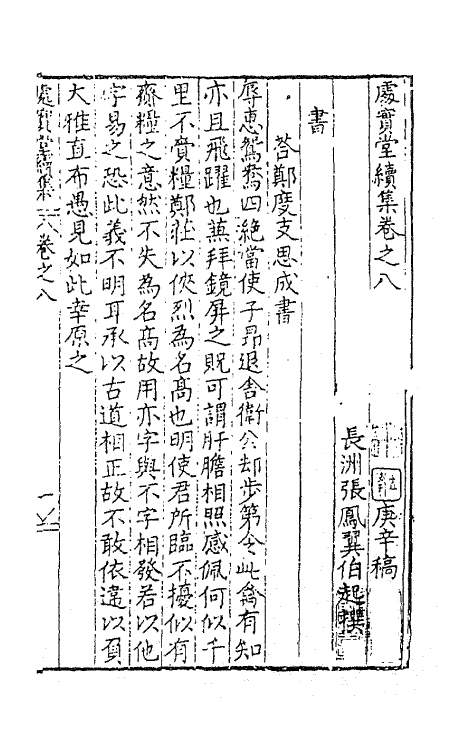 處實堂續集卷之八
庚辛稿
長洲張鳳翼伯起撰
書
荅鄭度支思成書
辱惠鴛鴦四絶當使子昂退舍衛公却步第令此禽有知
亦且飛躍也蒸拜鏡屏之貺可謂肝膽相照感佩何似千
里不賫糧鄭莊以俠烈為名髙也明使君所臨不擾似有
齎糧之意然不失為名髙故用亦字與不字相發若以他
字易之恐此義不明耳承以古道相正故不敢依違以負
大雅直布愚見如此幸原之
處實堂續集
卷之八
一